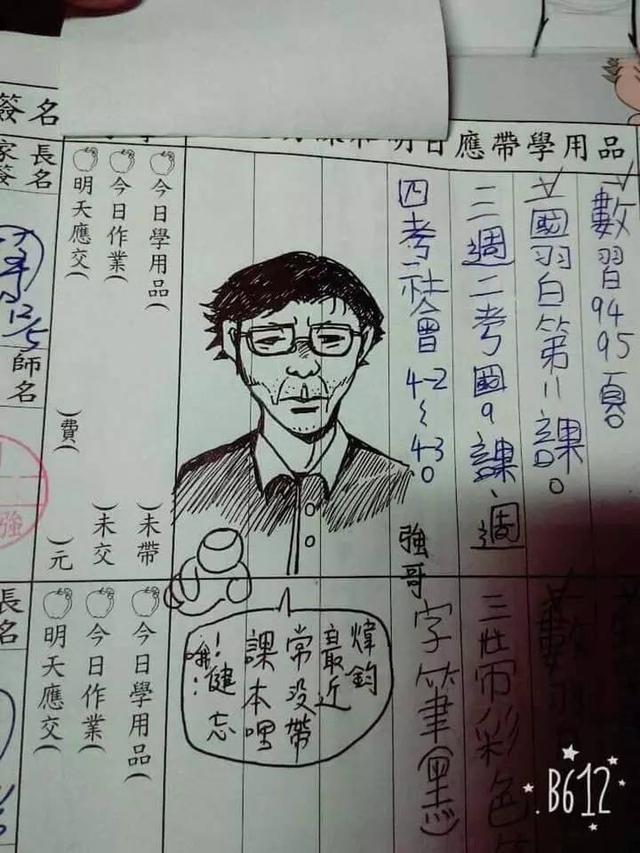 明日應帶學用品
數習94 95頁。
國習第11課。
三週二考國9課、週
四考社會4-2~4-3。
強哥
今日學用品（　）未帶
今日作業（　）未交
明天應交（　）費（　）元
簽名
長名
家簽
師名
強
煒鈞
最近
常沒帶
課本哩
！健忘
哦！
彩色
字筆(黑)
今日學用品（
今日作業（
明天應交（
長名
B612